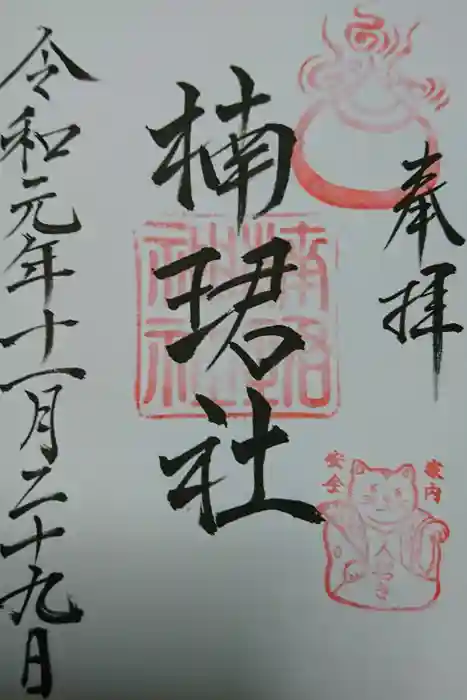 奉拝
楠珺社
家内
安全
令和元年十一月二十九日